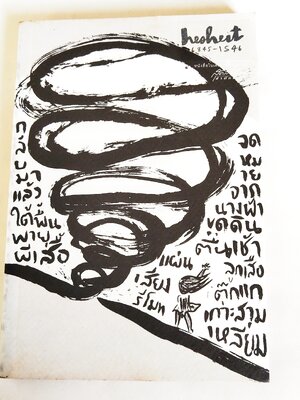 heshest
6845-1546
กลับมา
แล้ว
ใต้พื้น
พายุ
ผีเสื้อ
แผ่น
เสียง
รีโมท
จด
หมาย
จาก
นางฟ้า
ขุดดิน
ตื่นเช้า
ลูกเสือ
ตุ๊กแก
เกาะสาม
เหลี่ยม